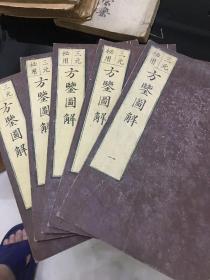 三元
秘用
方鑒圖解
三元
秘用
方鑒圖解
三元
秘用
方鑒圖解
三元
秘用
方鑒圖解
三元
秘用
方鑒圖解
一